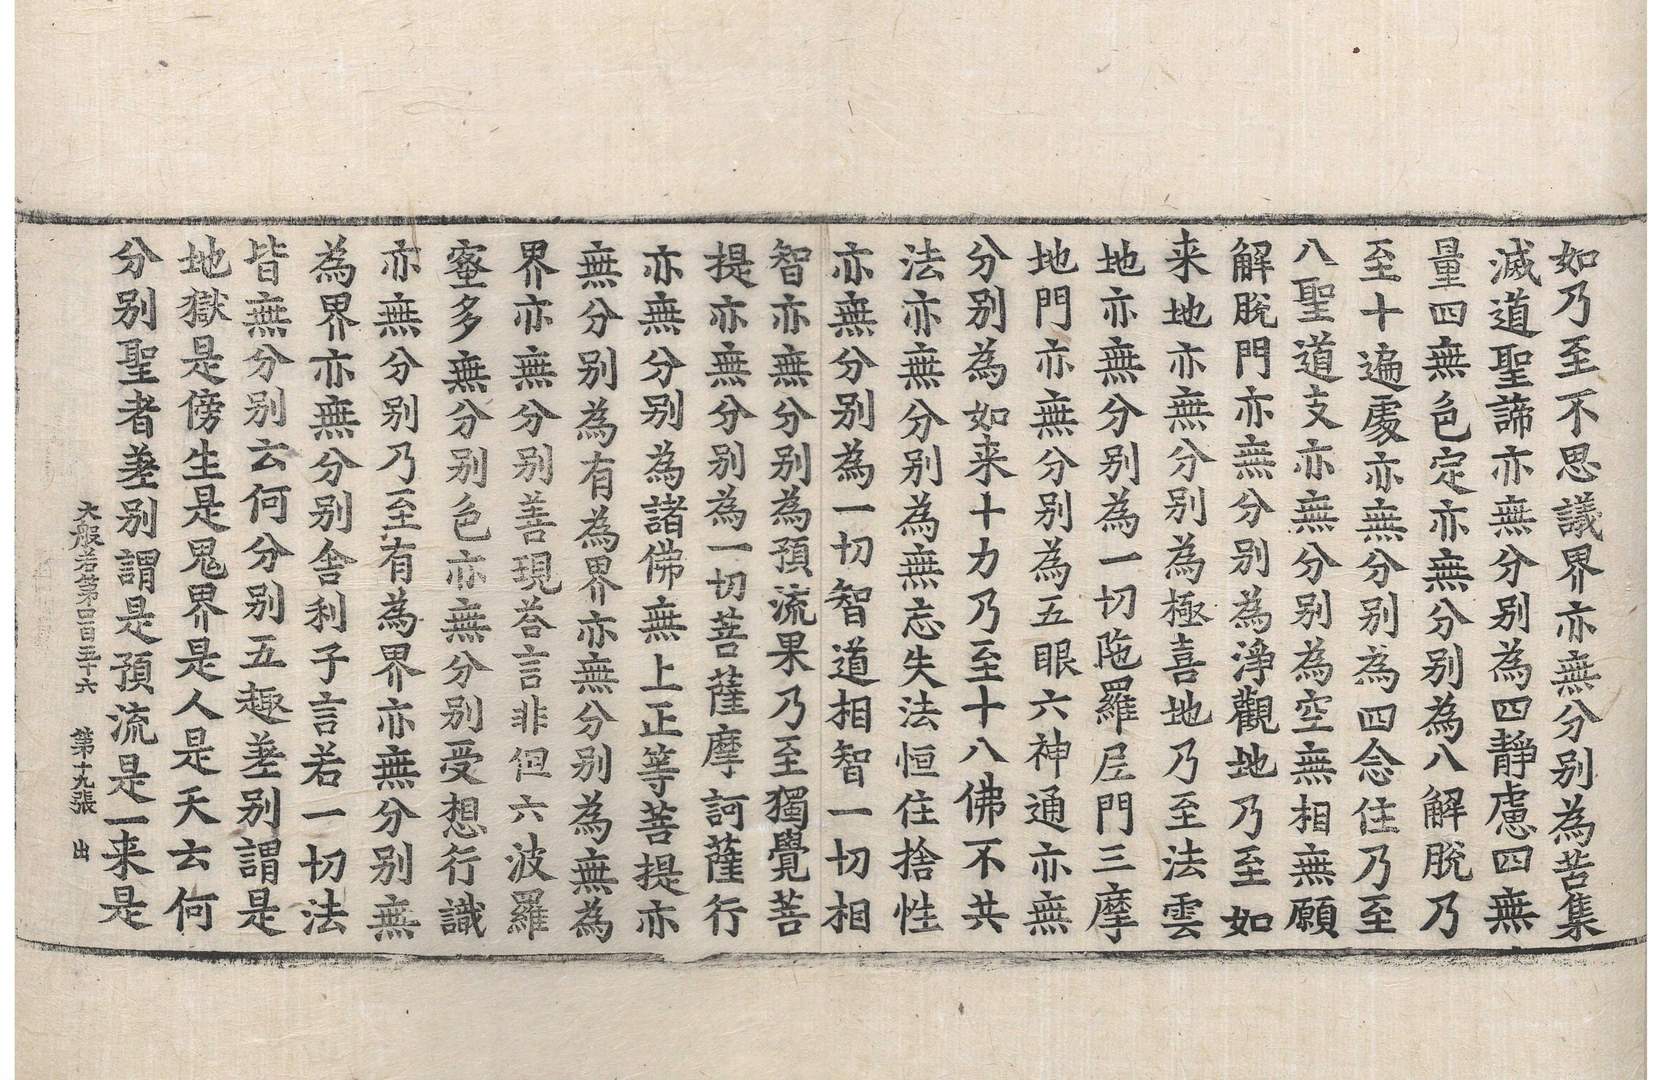 如乃至不思議界亦無分别為苦集
滅道聖諦亦無分别為四靜慮四無
量四無色定亦無分别為八解脫乃
至十遍處亦無分别為四念住乃至
八聖道支亦無分别為空無相無願
解脫門亦無分别為淨觀地乃至如
来地亦無分别為極喜地乃至法雲
地亦無分别為一切陁羅尼門三摩
地門亦無分别為五眼六神通亦無
分别為如来十力乃至十八佛不共
法亦無分别為無忘失法恒住捨性
亦無分别為一切智道相智一切相
智亦無分别為預流果乃至獨覺菩
提亦無分别為一切菩薩摩訶薩行
亦無分别為諸佛無上正等菩提亦
無分别為有為界亦無分别為無為
界亦無分别善現荅言非但六波羅
蜜多無分别色亦無分别受想行識
亦無分别乃至有為界亦無分别無
為界亦無分别舍利子言若一切法
皆無分别云何分别五趣差别謂是
地獄是傍生是鬼界是人是天云何
分别聖者差别謂是預流是一来是
大般若第四百五十六 第十九張 出